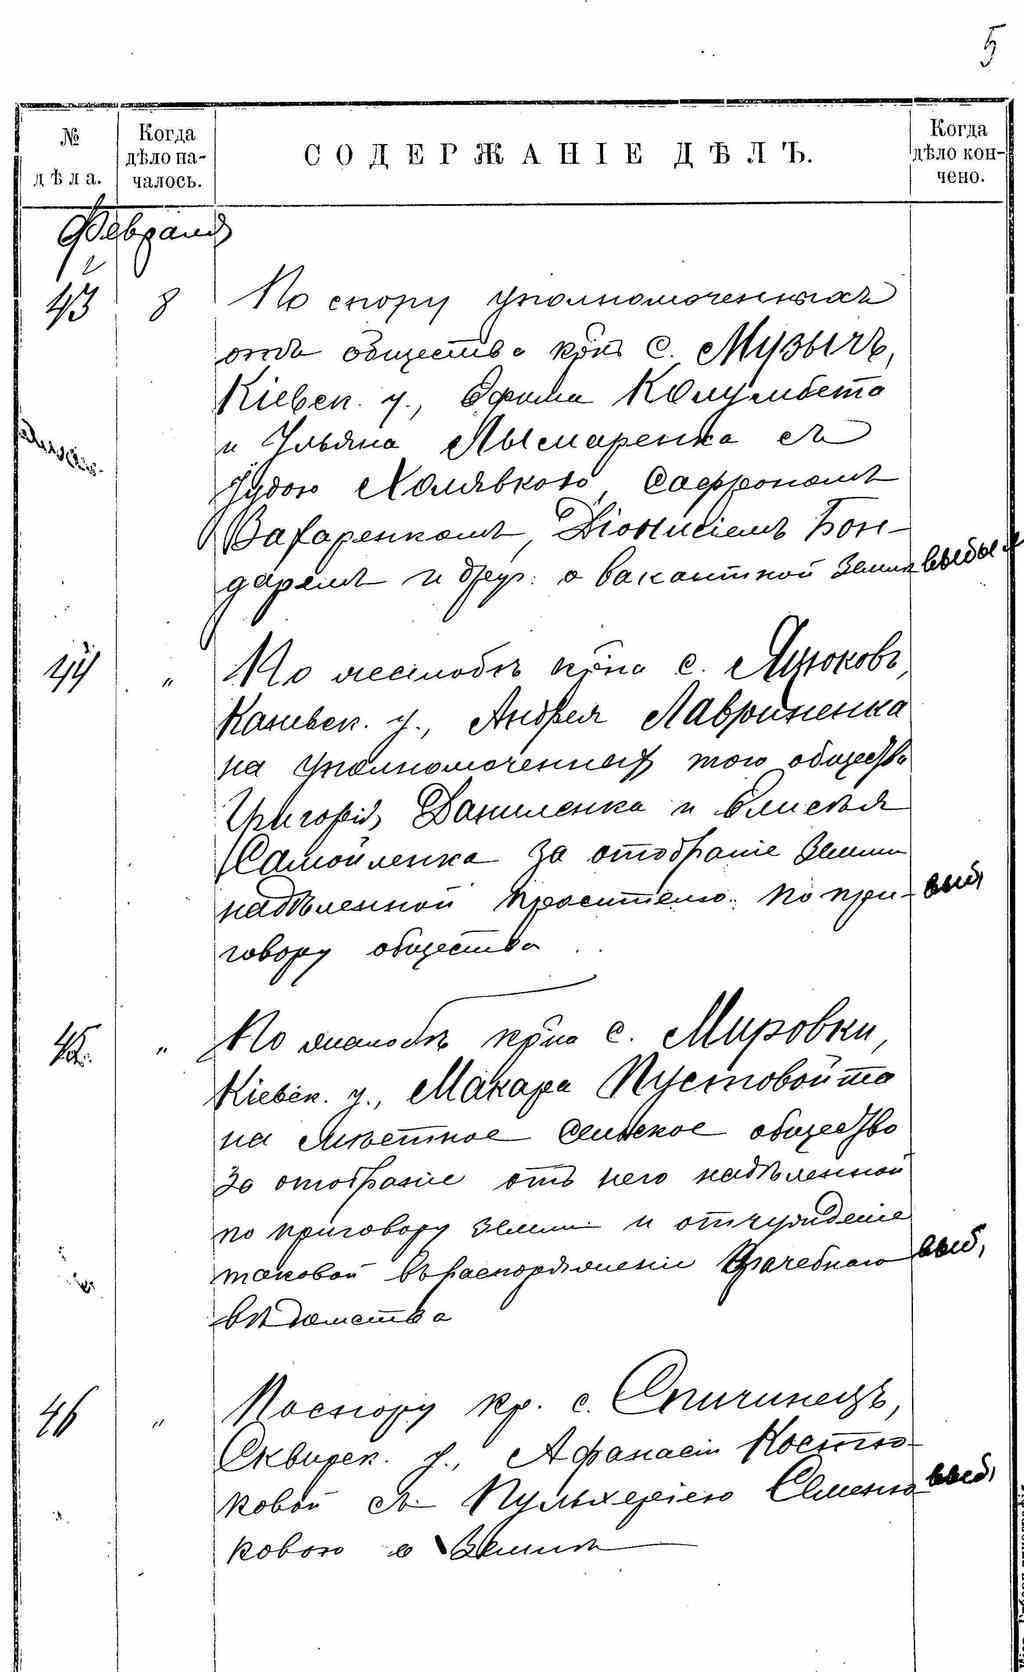 5
№ дѣла.
Когда дѣло на-чалось.
СОДЕРЖАНІЕ ДѢЛЪ.
Когда дѣло кон-чено.
Февраля
43 8 По спору уполномоченныхъ
отъ общества крнъ с. Музычъ,
Кіевск. у., Ефима Колумбета
и Ульяна Лымаренка съ
Іудою Холявкою, Сафрономъ
Захаренкомъ, Діонисіемъ Бон-
даремъ и друг. о вакантной земли выбыл
44 " По жалобѣ крна с. Яцюковъ,
Каневск. у., Андрея Лавриненка
на уполномоченныхъ того общества
Григорія Даниленка и Елисѣя
Самойленка за отобраніе земли
надѣленной просителю по при- выб,
говору общества
45. " По жалобѣ крна с. Мировки,
Кіевск. у., Макара Пустовойта
на мѣстное сельское общество
за отобраніе отъ него надѣленной
по приговору земли и отчужденіе
таковой въ распоряженіи врачебнаго выб,
вѣдомства
46 " По спору кр. с. Спичинецъ,
Сквирск. у., Афанасіи Костю-
ковой съ Пульхеріею Семеню- выб,
ковою о землѣ